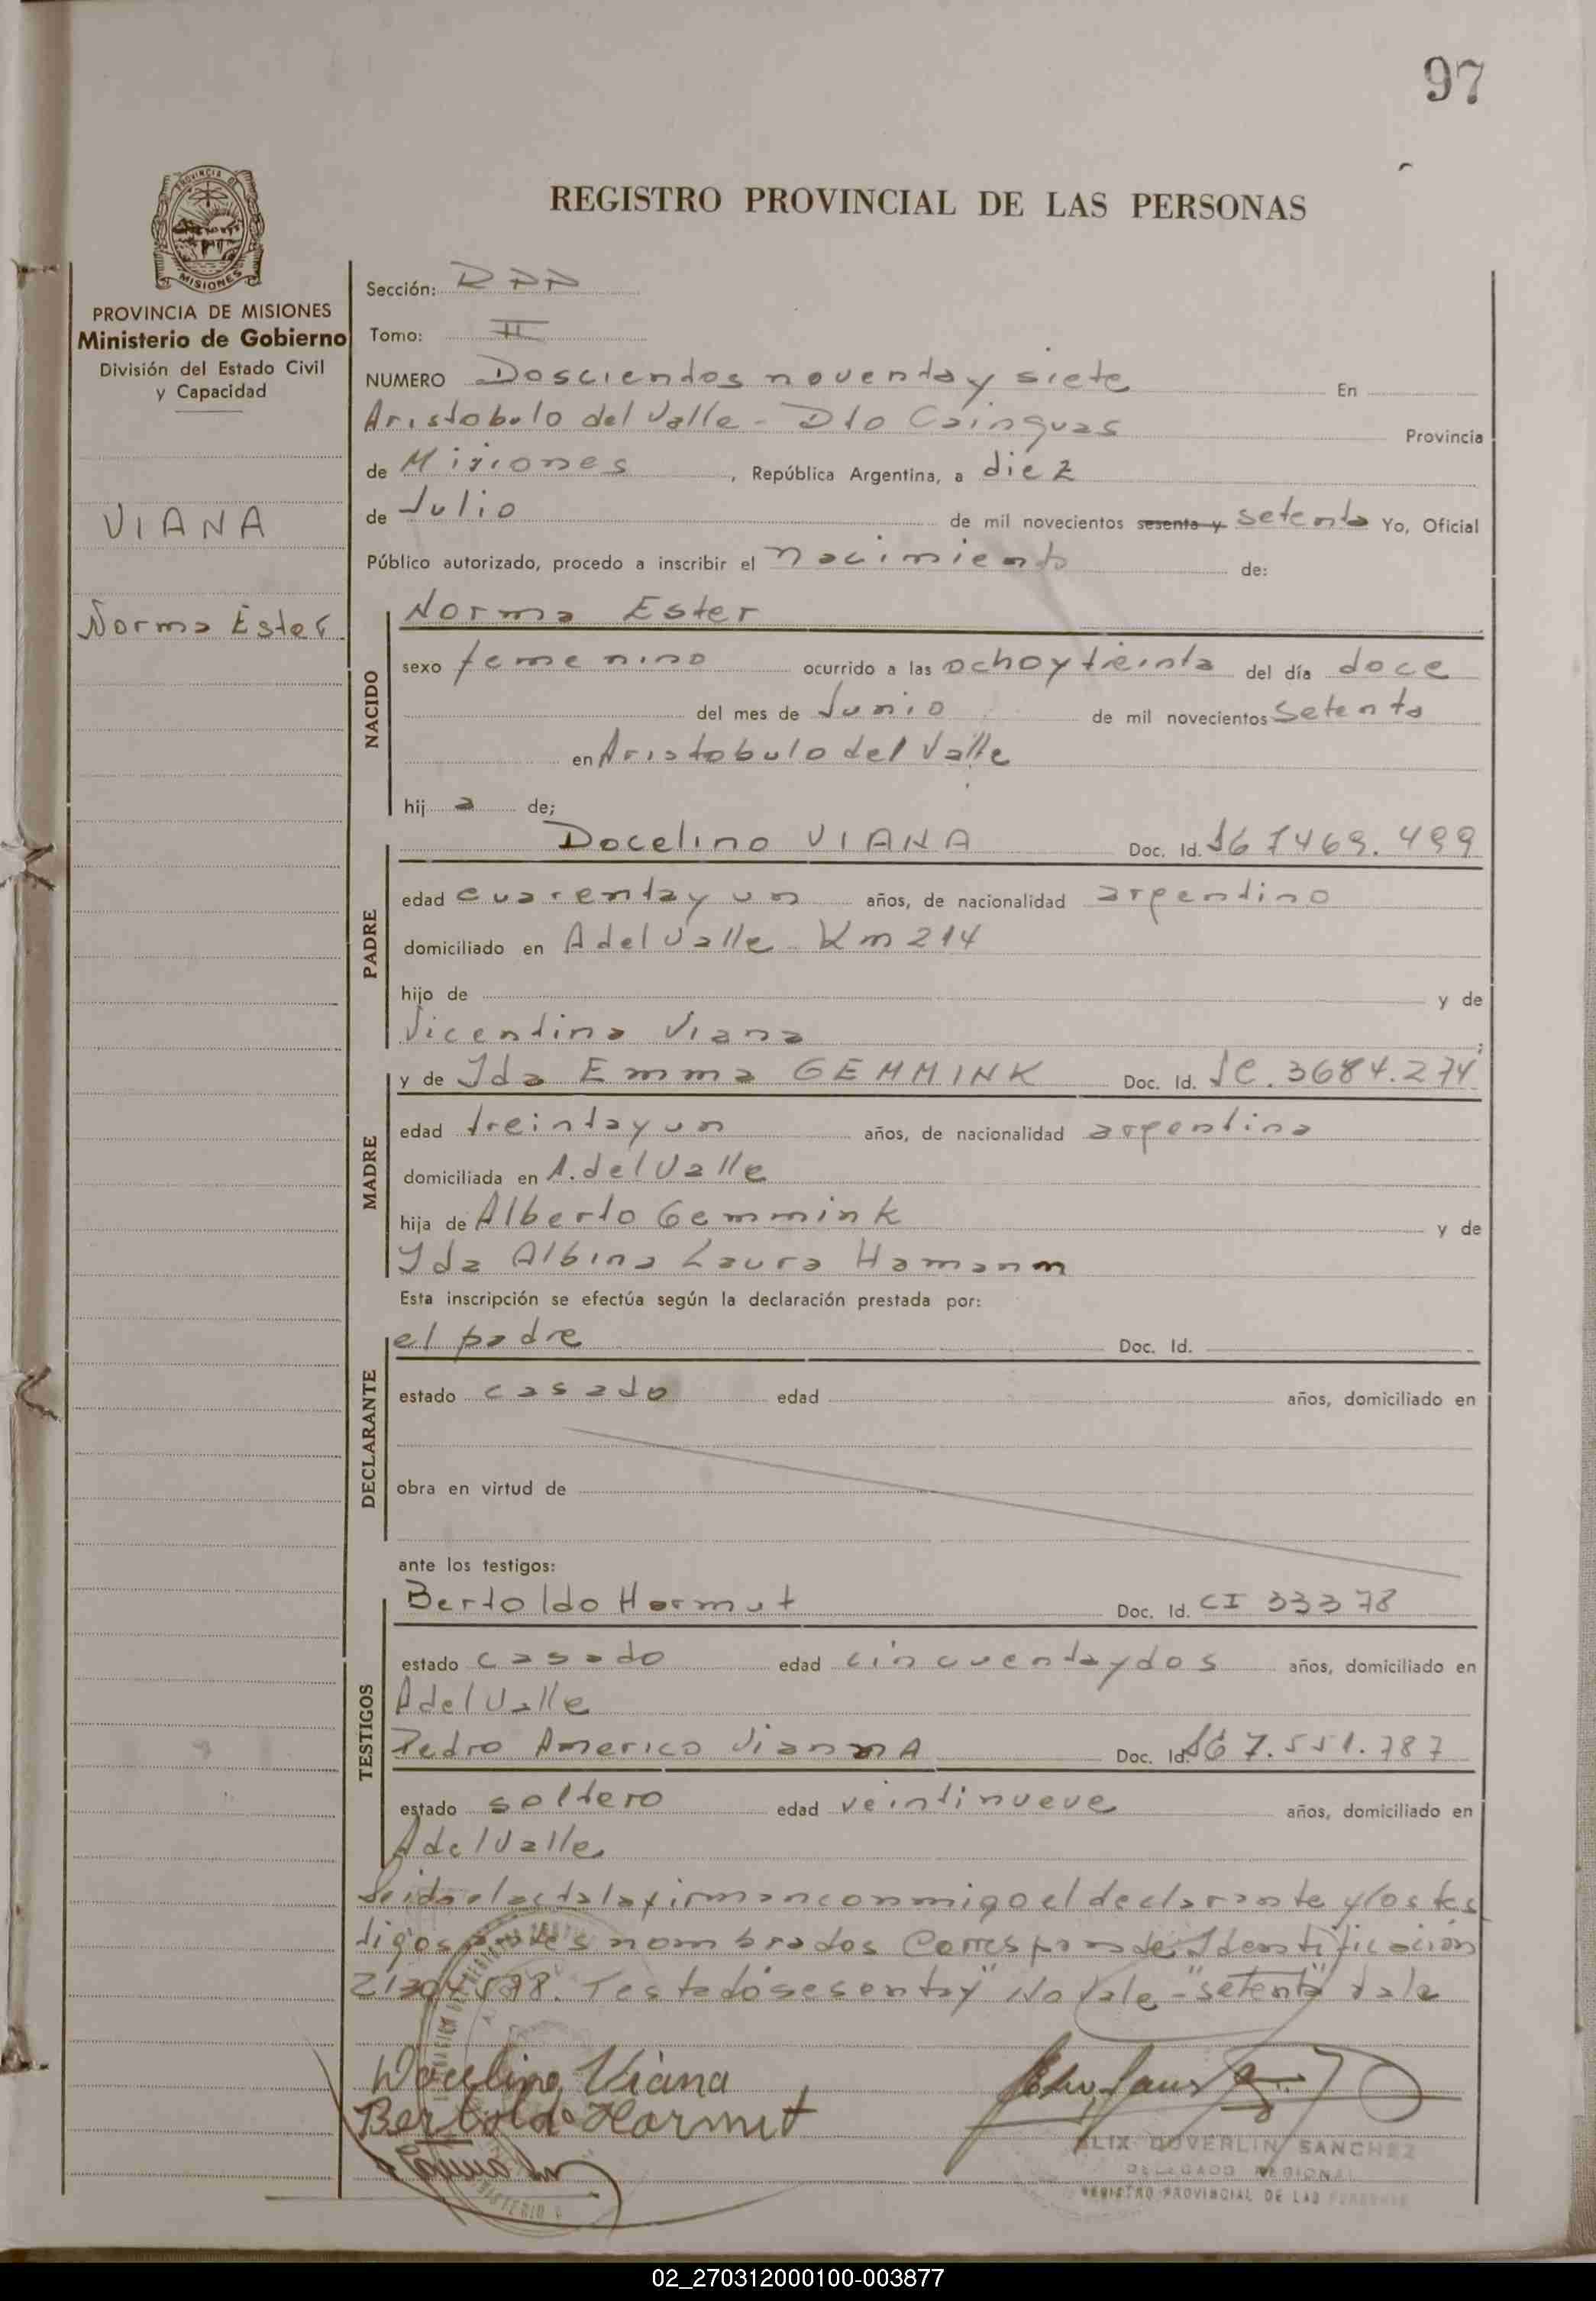 97
PROVINCIA DE
MISIONES
REGISTRO PROVINCIAL DE LAS PERSONAS
PROVINCIA DE MISIONES
Ministerio de Gobierno
División del Estado Civil
y Capacidad
VIANA
Norma Ester
Sección:
Tomo: II
NUMERO Doscientos noventa y siete En
Aristobulo del Valle - Dto Cainguas Provincia
de Misiones, República Argentina, a diez
de Julio de mil novecientos sesenta y setenta Yo, Oficial
Público autorizado, procedo a inscribir el nacimiento de:
NACIDO
Norma Ester
sexo femenino ocurrido a las ocho y treinta del día doce
del mes de Junio de mil novecientos setenta
en Aristobulo del Valle
hij a de;
PADRE
Docelino VIANA Doc. Id. 7469.499
edad cuarenta y un años, de nacionalidad argentino
domiciliado en A del Valle Km 214
hijo de y de
Vicentina Viana ;
MADRE
y de Ida Emma GEMMINK Doc. Id. 3684.274
edad treinta y un años, de nacionalidad argentina
domiciliada en A. del Valle
hija de Alberto Gemmink y de
Ida Albina Laura Hamann
Esta inscripción se efectúa según la declaración prestada por:
DECLARANTE
el padre Doc. Id.
estado casado edad años, domiciliado en
obra en virtud de
ante los testigos:
TESTIGOS
Bertoldo Hormut Doc. Id. CI 33378
estado casado edad cincuenta y dos años, domiciliado en
A del Valle
Pedro Americo Vianna Doc. Id. 7.551.787
estado soltero edad veintinueve años, domiciliado en
A del Valle
Leida el acta la firman conmigo el declarante y los tes
tigos antes nombrados Corresponde Identificacion
Testado "sesenta y" No Vale - "setenta" Vale
Docelino Viana
Bertoldo Hormut
DUVERLIN SANCHEZ
DELEGADO REGIONAL
REGISTRO PROVINCIAL DE LAS PERSONAS
02_270312000100-003877